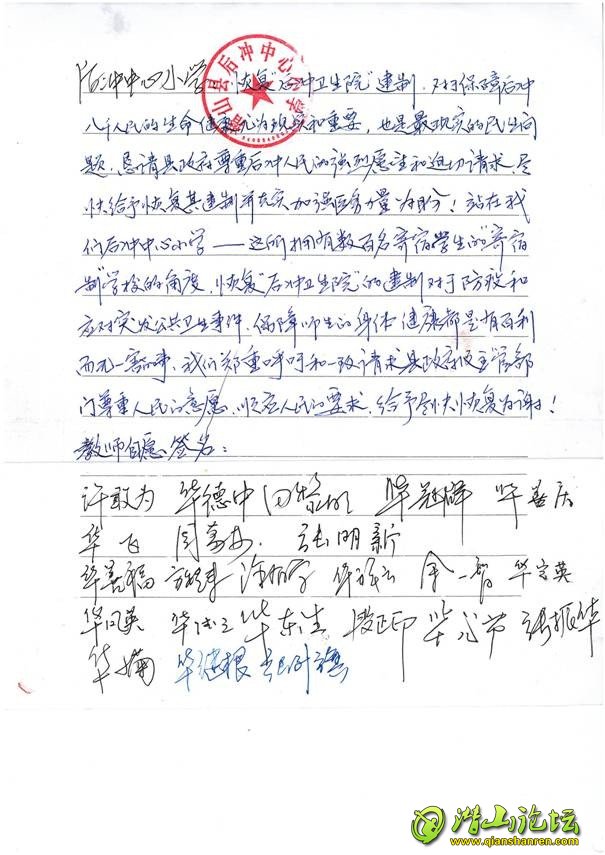 后冲中心小学 恢复“后冲卫生院”建制,对于保障后冲
八千人民的生命健康尤为现实和重要,也是最现实的民生问
题,恳请县政府尊重后冲人民的强烈愿望和迫切请求,尽
快给予恢复其建制并充实加强医务力量为盼!站在我
们后冲中心小学——这所拥有数百名寄宿学生的“寄宿
制”学校的角度,恢复“后冲卫生院”的建制对于防疫和
应对突发公共卫生事件,保障师生的身体健康都是有百利
而无一害的事,我们郑重呼吁和一致请求县政府及主管部
门尊重人民的意愿,顺应人民的要求,给予尽快恢复为谢!
教师自愿签名:
许敢为 华德中 华冠群 华善庆
华飞 张明新
华善福 余一智 华宗英
华风英 华东生 段正印 张振华
华楠 华继根
潜山县后冲中心小学
潜山论坛
www.qianshanren.com